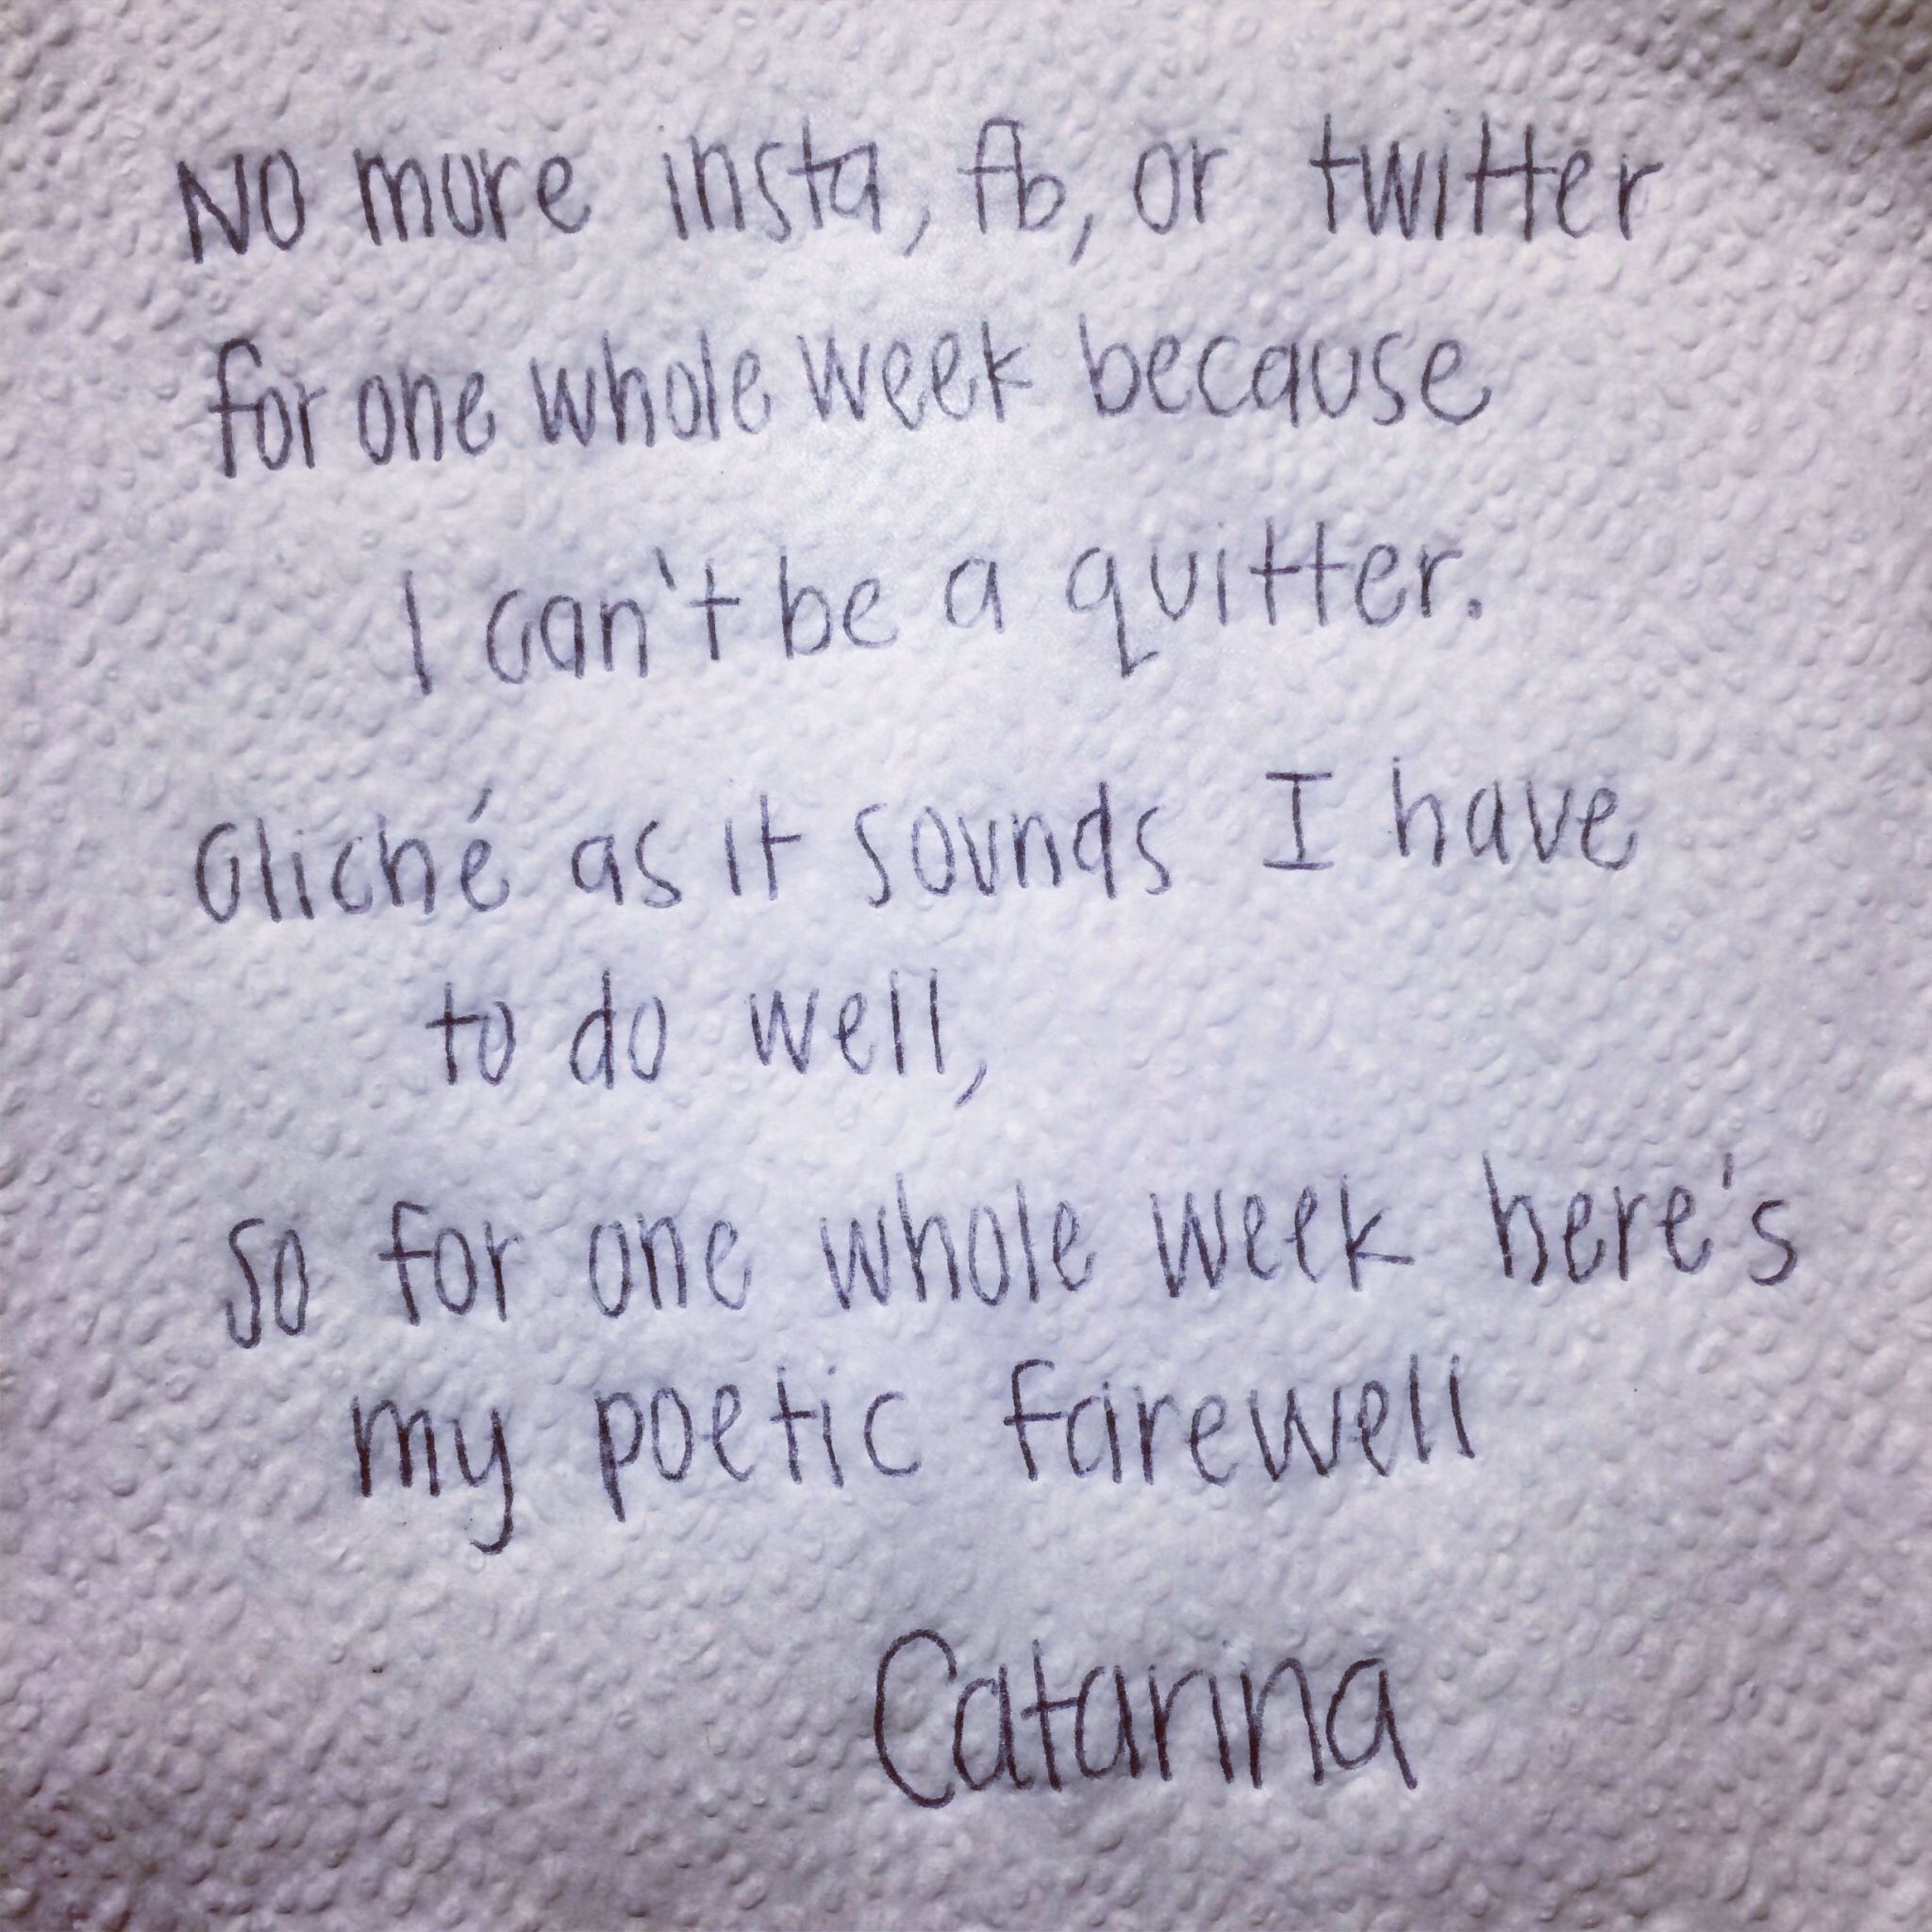 No more insta, fb, or twitter
for one whole week because
I can't be a quitter.
Cliché as it sounds I have
to do well,
So for one whole week here's
my poetic farewell
Catarina